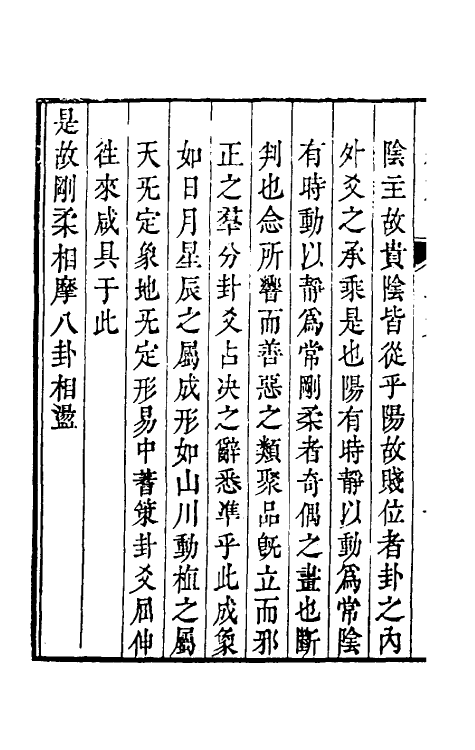 陰主故貴陰皆從乎陽故賤位者卦之內
外爻之承乘是也陽有時靜以動爲常陰
有時動以靜爲常剛柔者奇偶之畫也斷
判也念所嚮而善惡之類聚品旣立而邪
正之羣分卦爻占决之辭悉準乎此成象
如日月星辰之屬成形如山川動植之屬
天旡定象地旡定形易中蓍策卦爻屈伸
徃來咸具于此
是故剛柔相摩八卦相盪